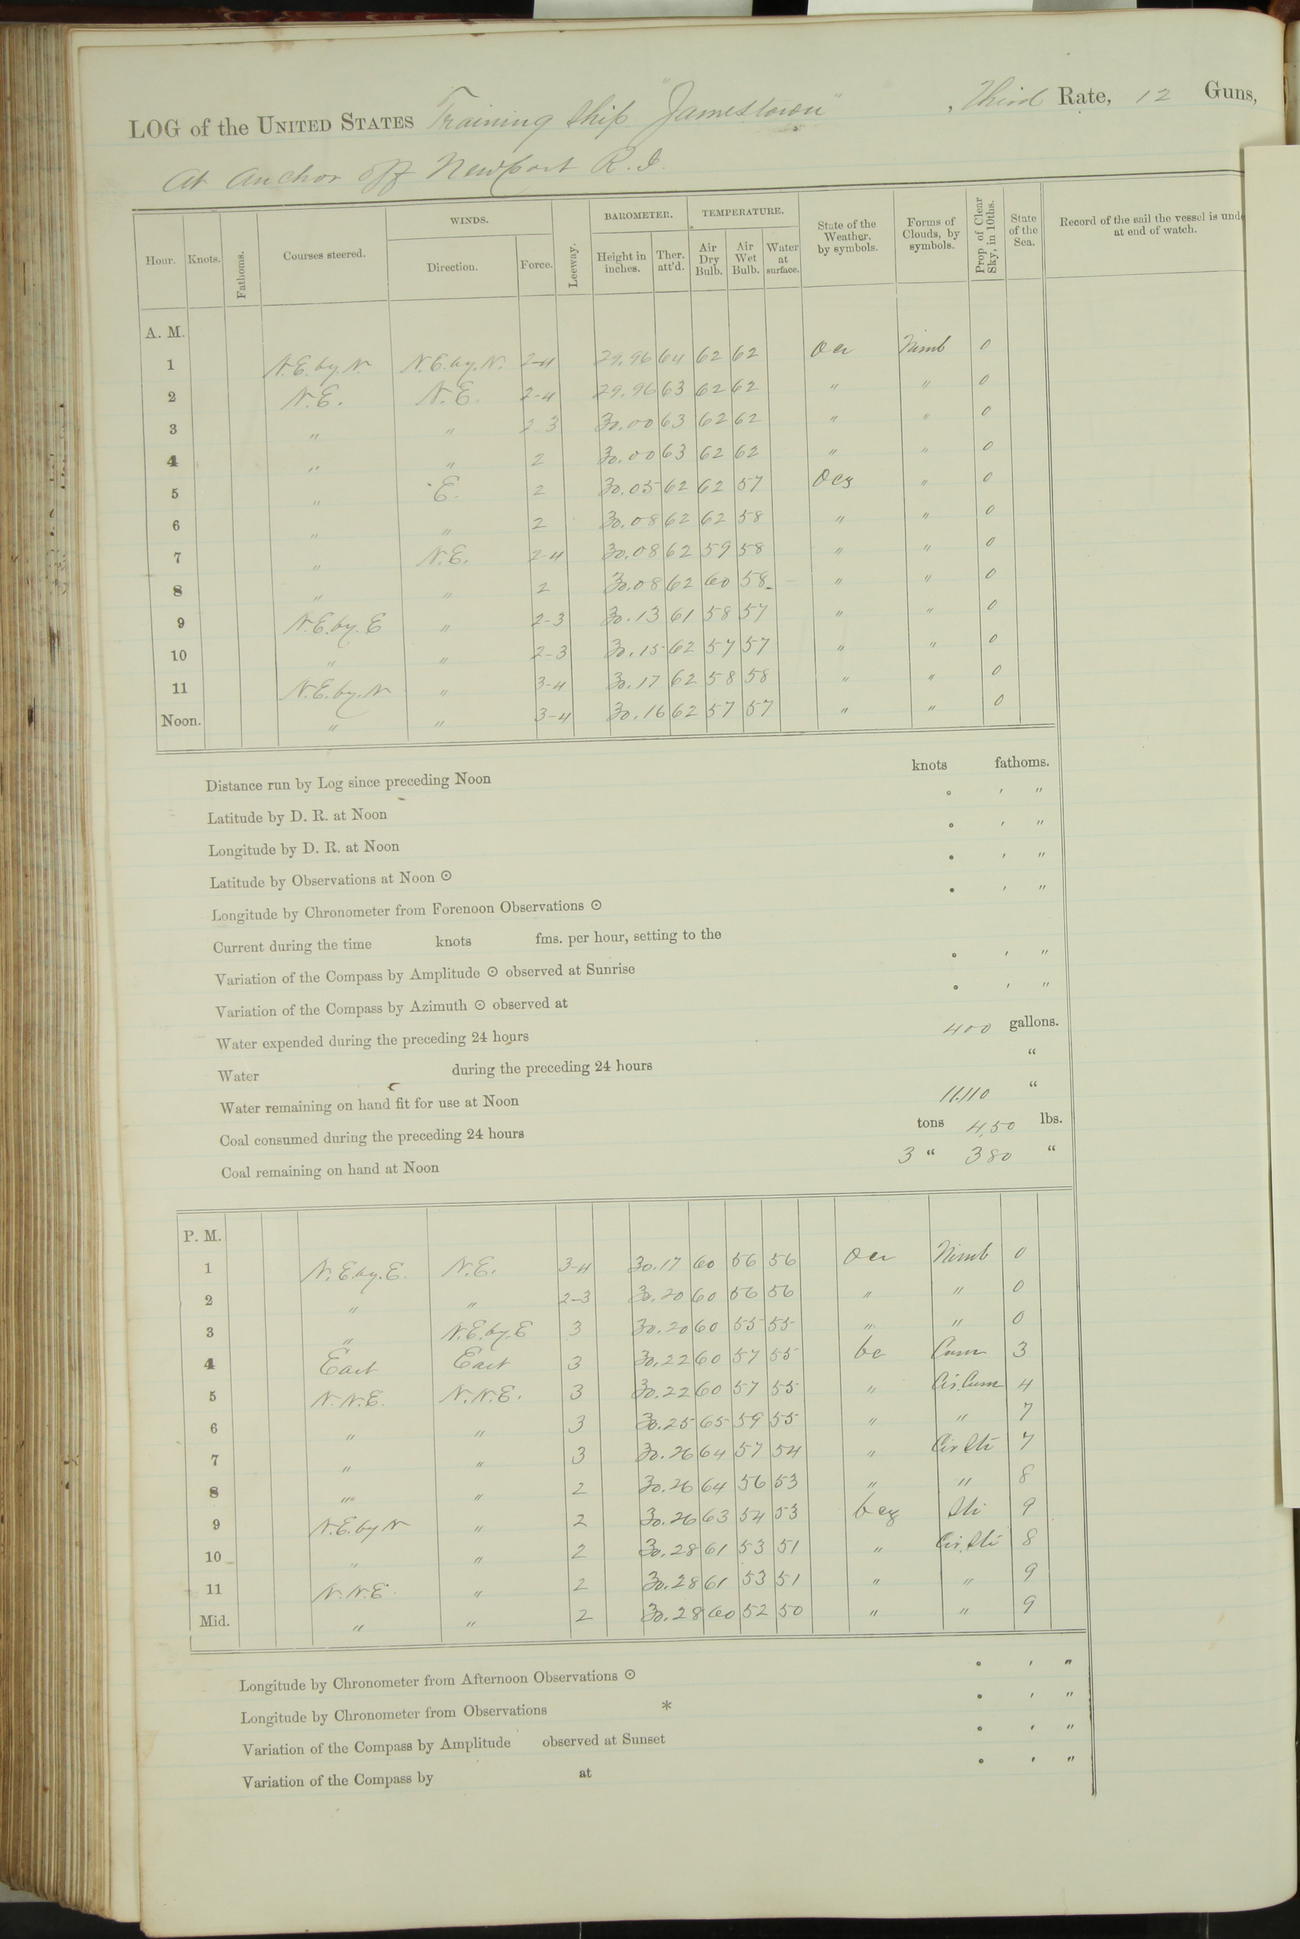 LOG of the UNITED STATES Training Ship "Jamestown", Third Rate, 12 Guns,
At Anchor off Newport R.I.
Hour. Knots. Fathoms. Courses steered. WINDS. Direction. Force. Leeway. BAROMETER. Height in inches. Ther. att'd. TEMPERATURE. Air Dry Bulb. Air Wet Bulb. Water at surface. State of the Weather, by symbols. Forms of Clouds, by symbols. Prop. of Clear Sky, in 10ths. State of the Sea. Record of the sail the vessel is unde at end of watch.
A. M.
1 N.E. by. N. N.E. by. N. 2-4 29.96 64 62 62 Ocr Nimb 0
2 N.E. N.E. 2-4 29.96 63 62 62 " " 0
3 " " 2-3 30.00 63 62 62 " " 0
4 " " 2 30.00 63 62 62 " " 0
5 " E. 2 30.05 62 62 57 Ocg " 0
6 " " 2 30.08 62 62 58 " " 0
7 " N.E. 2-4 30.08 62 59 58 " " 0
8 " " 2 30.08 62 60 58 " " 0
9 N.E. by. E " 2-3 30.13 61 58 57 " " 0
10 " " 2-3 30.15 62 57 57 " " 0
11 N.E. by. N " 3-4 30.17 62 58 58 " " 0
Noon. " " 3-4 30.16 62 57 57 " " 0
Distance run by Log since preceding Noon knots fathoms.
Latitude by D. R. at Noon ° ' "
Longitude by D. R. at Noon ° ' "
Latitude by Observations at Noon ⊙ ° ' "
Longitude by Chronometer from Forenoon Observations ⊙ ° ' "
Current during the time knots fms. per hour, setting to the
Variation of the Compass by Amplitude ⊙ observed at Sunrise ° ' "
Variation of the Compass by Azimuth ⊙ observed at ° ' "
Water expended during the preceding 24 hours 400 gallons.
Water during the preceding 24 hours "
Water remaining on hand fit for use at Noon 11.110 "
Coal consumed during the preceding 24 hours tons 4,50 lbs.
Coal remaining on hand at Noon 3 " 380 "
P. M.
1 N.E. by. E. N.E. 3-4 30.17 60 56 56 Ocr Nimb 0
2 " " 2-3 30.20 60 56 56 " " 0
3 " N.E. by. E 3 30.20 60 55 55 " " 0
4 East East 3 30.22 60 57 55 bc Cum 3
5 N.N.E. N.N.E. 3 30.22 60 57 55 " Cir. Cum 4
6 " " 3 30.25 65 59 55 " " 7
7 " " 3 30.26 64 57 54 " Cir Sti 7
8 " " 2 30.26 64 56 53 " " 8
9 N.E. by N " 2 30.26 63 54 53 bcg Sti 9
10 " " 2 30.28 61 53 51 " Cir. Sti 8
11 N.N.E. " 2 30.28 61 53 51 " " 9
Mid. " " 2 30.28 60 52 50 " " 9
Longitude by Chronometer from Afternoon Observations ⊙ ° ' "
Longitude by Chronometer from Observations * ° ' "
Variation of the Compass by Amplitude observed at Sunset ° ' "
Variation of the Compass by at ° ' "